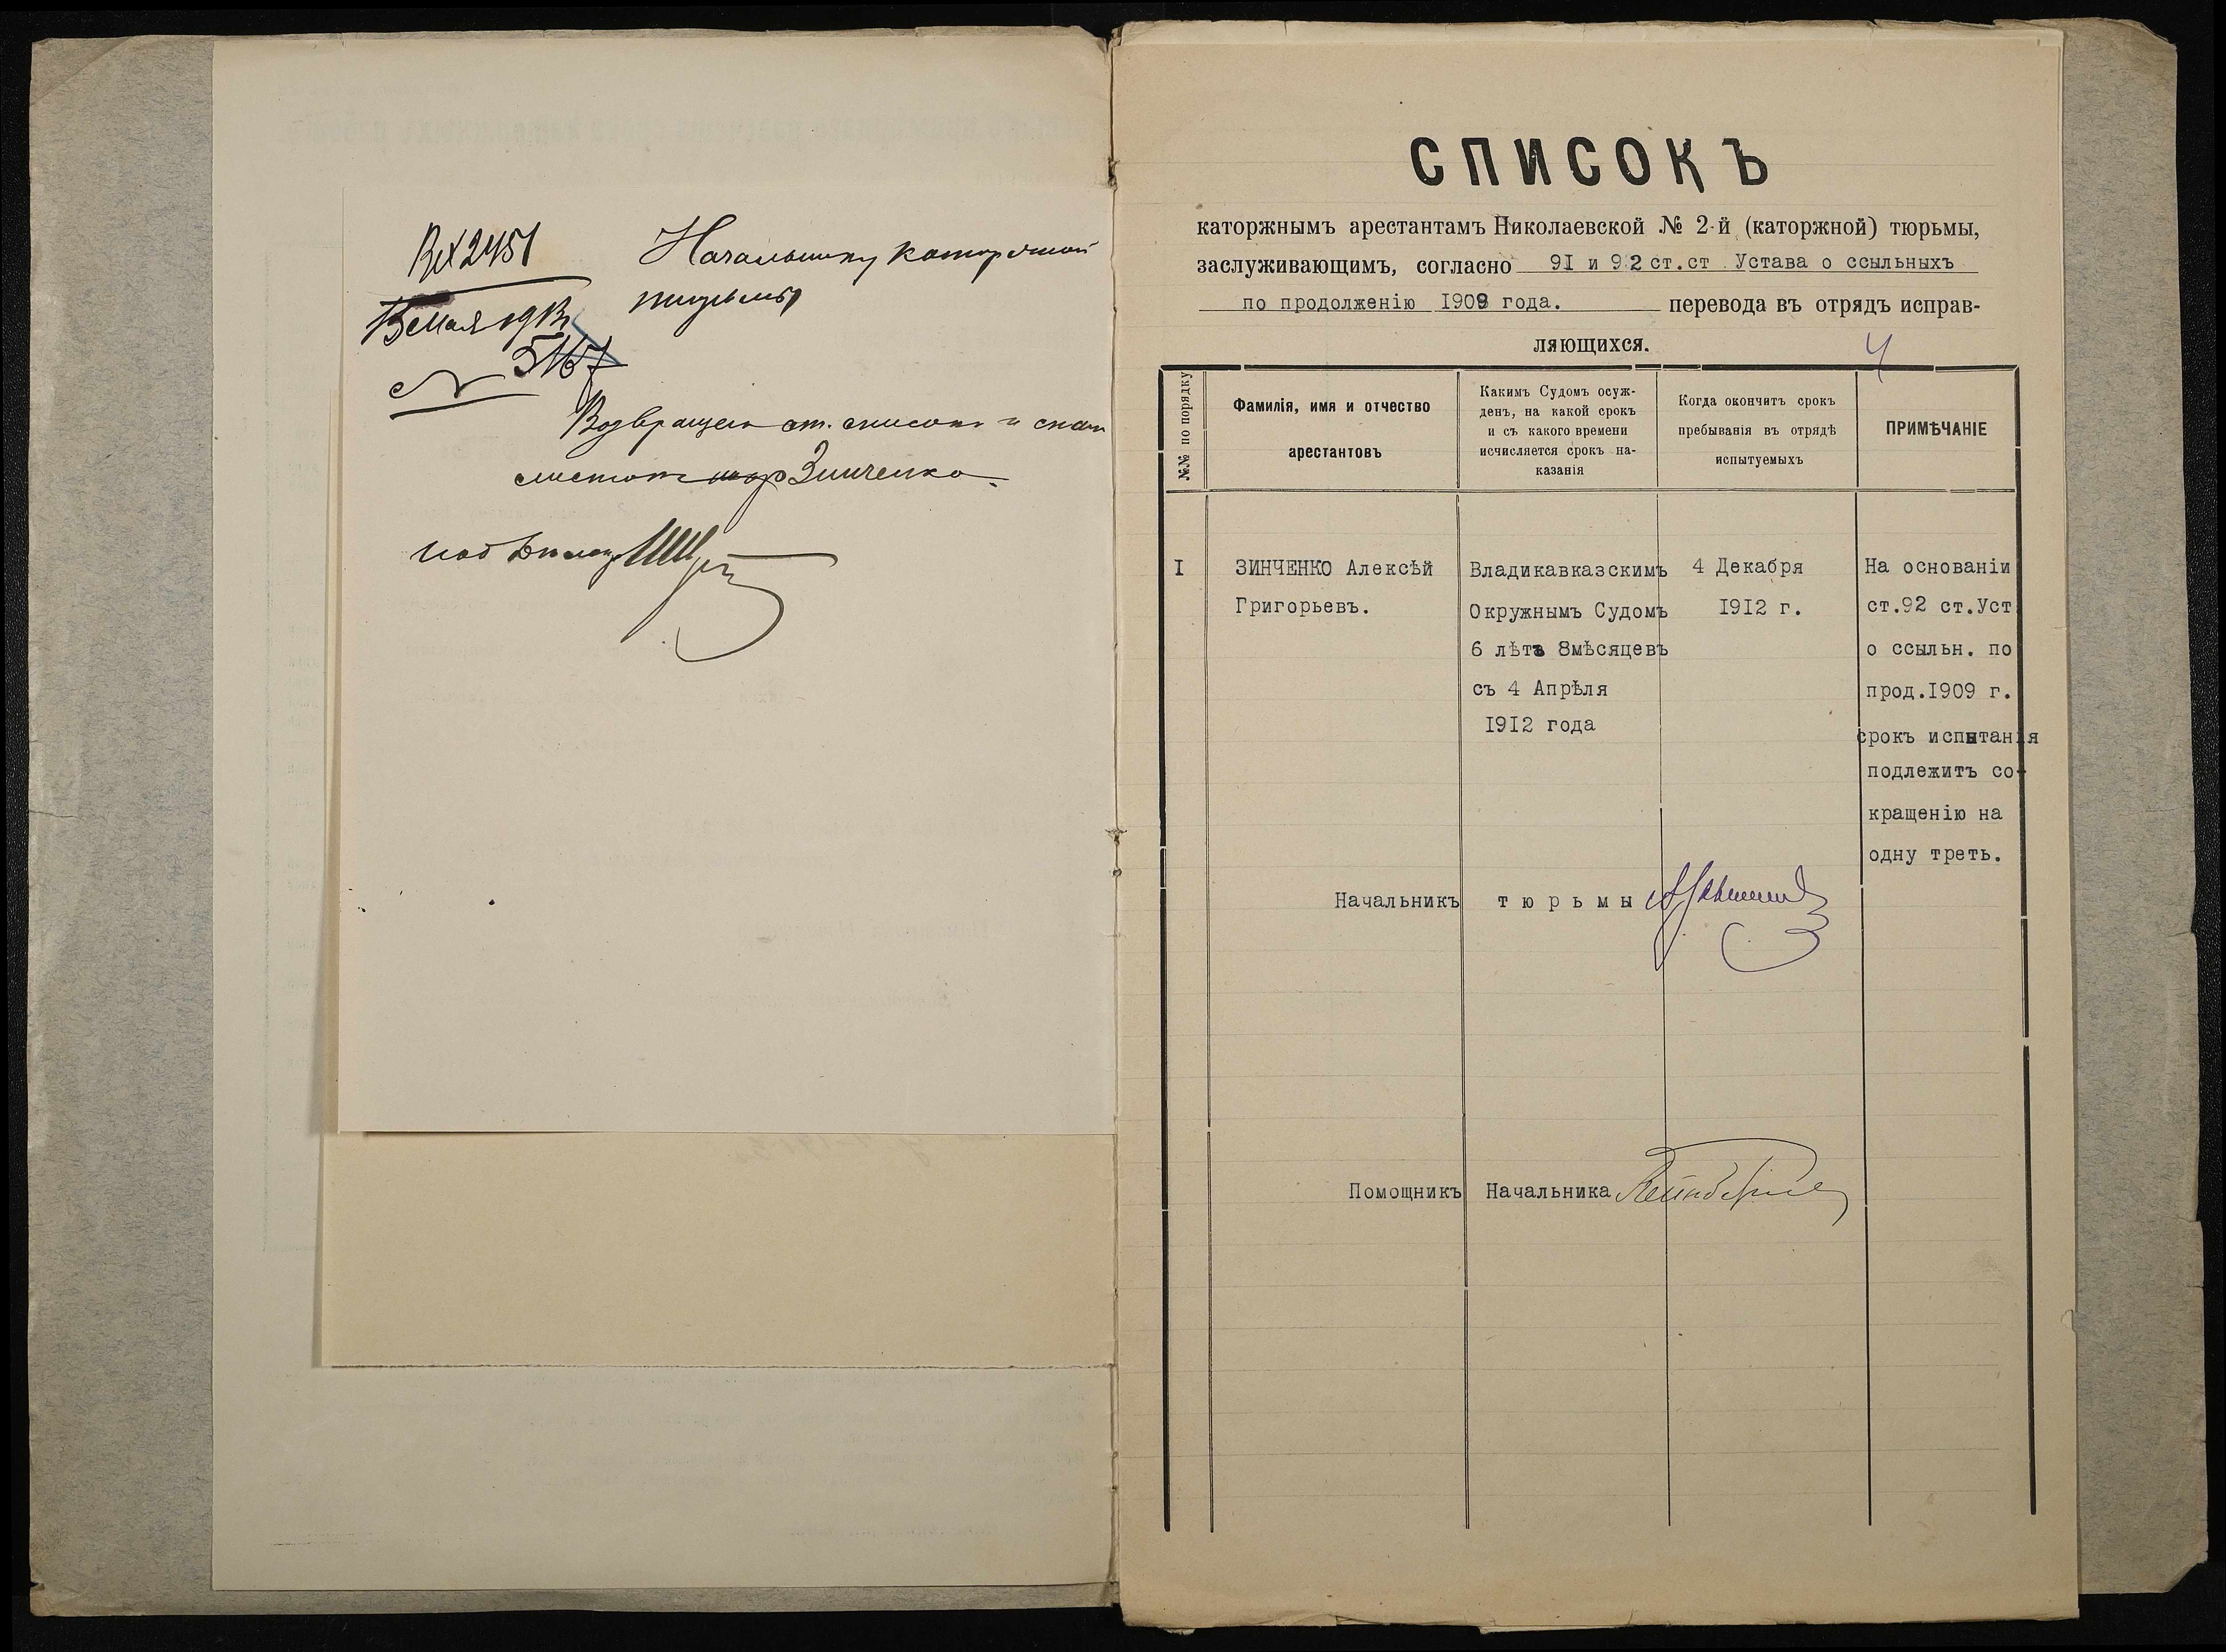 Вх 2451
Начальнику каторжной
тюрьмы
13 Мая 1913 г.
№ 5167
Возвращен ст. список и скор
листом Зинченко.
СПИСОКЪ
каторжнымъ арестантамъ Николаевской № 2-й (каторжной) тюрьмы,
заслуживающимъ, согласно 91 и 92 ст.ст Устава о ссыльныхъ
по продолженію 1909 года. перевода въ отрядъ исправ-
ляющихся.
4
№№ по порядку
Фамилія, имя и отчество
арестантовъ
Какимъ Судомъ осуж-
денъ, на какой срокъ
и съ какого времени
исчисляется срокъ на-
казанія
Когда окончитъ срокъ
пребыванія въ отрядѣ
испытуемыхъ
ПРИМѢЧАНІЕ
I
ЗИНЧЕНКО Алексѣй
Григорьевъ.
Владикавказскимъ
Окружнымъ Судомъ
6 лѣтъ 8мѣсяцевъ
съ 4 Апрѣля
1912 года
4 Декабря
1912 г.
На основаніи
ст.92 ст.Уст
о ссыльн. по
прод.1909 г.
срокъ испытанія
подлежитъ со-
кращенію на
одну треть.
Начальникъ тюрьмы
Помощникъ Начальника